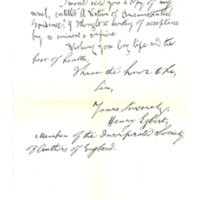 I would send you a copy of my
work, entitled "A Victim of Circumstantial
Evidence", if thought worthy of acceptance
by so eminent a
Wishing you long life and the
best of health,
I have the honor to be,
Sir,
Yours Sincerely,
Henry Egbert,
Member of the Incorporated Society
of Authors of England.